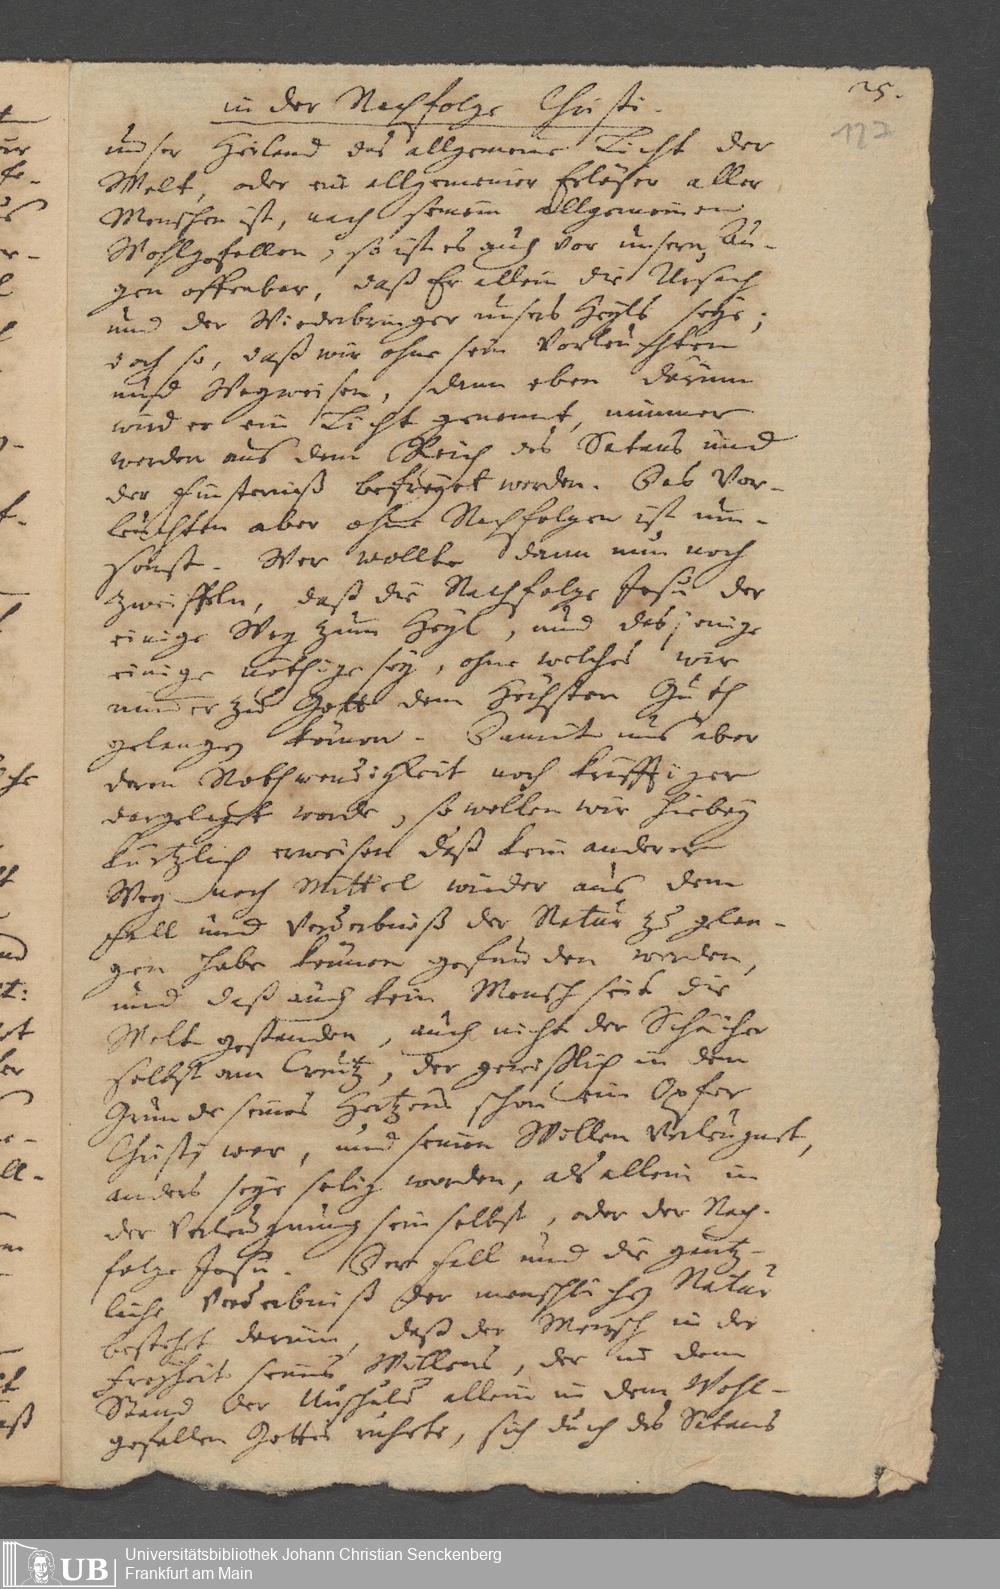 in der Nachfolge Christi.
25.
127
unser Heiland das allgemeine Licht der
Welt, oder ein allgemeiner Erlöser aller
Menschen ist, nach seinem allgemeinen
Wohlgefallen, so ist es auch vor unsern Au-
gen offenbar, daß Er allein die Ursach
und der Wiederbringer unsers Heyls seye;
doch so, daß wir ohne sein Vorleuchten
und Wegweisen, dann eben darum
wird er ein Licht genennt, nimmer
werden aus dem Reich des Satans und
der Finsterniß befreyet werden. Das Vor-
leuchten aber ohne Nachfolgen ist um-
sonst. Wer wollte dann nun noch
zweiffeln, daß die Nachfolge Jesu der
einige Weg zum Heyl, und dasjenige
einige nöthige sey, ohne welches wir
nimer zu Gott dem Höchsten Guth
gelangen können. Damit uns aber
deren Nothwendigkeit noch kräfftiger
dargelegt werde, so wollen wir hiebey
kürtzlich erweisen daß kein anderer
Weg noch Mittel wieder aus dem
Fall und Verderbniß der Natur zu gelan-
gen habe können gefunden werden,
und daß auch kein Mensch seit die
Welt gestanden, auch nicht der Schächer
selbst am Creutz, der gewißlich in dem
Grunde seines Hertzens schon ein Opfer
Christi war, und seinen Willen verleugnet,
anders seye selig worden, als allein in
der Verleugnung sein selbst, oder der Nach-
folge Jesu. Der Fall und die gäntz-
liche Verderbniß der menschlichen Natur
bestehet darinn, daß der Mensch in der
Freyheit seines Willens, der in dem
Stand der Unschuld allein in dem Wohl-
gefallen Gottes ruhete, sich durch des Satans
UB
Universitätsbibliothek Johann Christian Senckenberg
Frankfurt am Main